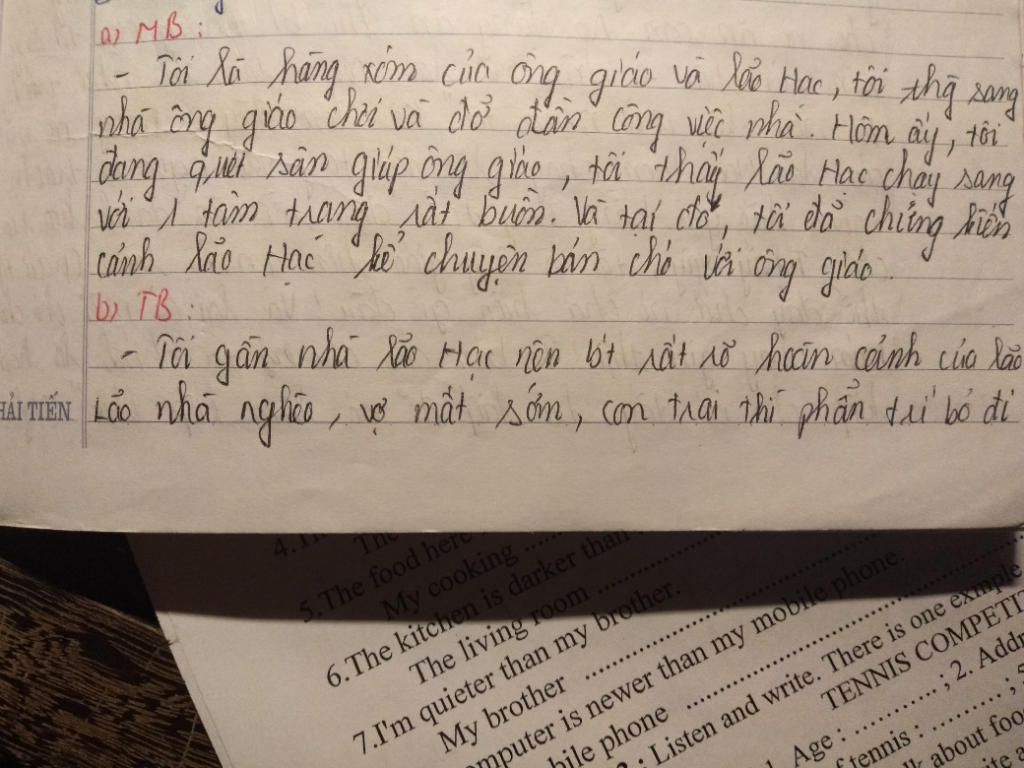 a) MB :
- Tôi là hàng xóm của ông giáo và lão Hạc, tôi thg sang
nhà ông giáo chơi và đỡ đần công việc nhà. Hôm ấy, tôi
đang quét sân giúp ông giáo, tôi thấy lão Hạc chạy sang
với 1 tâm trạng rất buồn. Và tại đó, tôi đã chứng kiến
cảnh lão Hạc kể chuyện bán chó với ông giáo.
b) TB :
- Tôi gần nhà lão Hạc nên bt rất rõ hoàn cảnh của lão
HẢI TIẾN
Lão nhà nghèo, vợ mất sớm, con trai thì phẫn trí bỏ đi
The
5.The food here
My cooking ..........
6.The kitchen is darker than
The living room ..........
7.I'm quieter than my brother.
My brother ..........
omputer is newer than my mobile phone.
bile phone ..........
: Listen and write. There is one exmple
TENNIS COMPETIT
Age : .......... ; 2. Addr
f tennis : .......... ; 5
k about foo